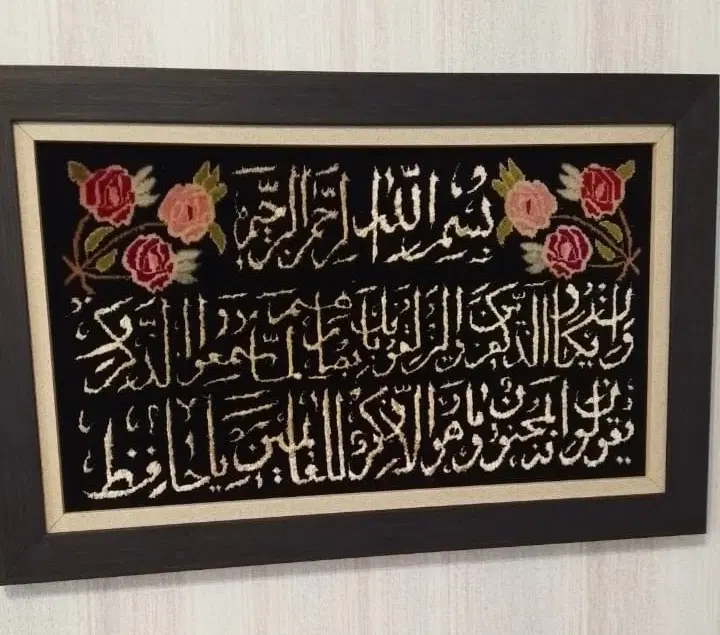 بسم الله الرحمن الرحیم
وان یکاد الذین کفروا لیزلقونک بابصارهم لما سمعوا الذکر و
یقولون انه لمجنون وما هو الا ذکر للعالمین یا حافظ